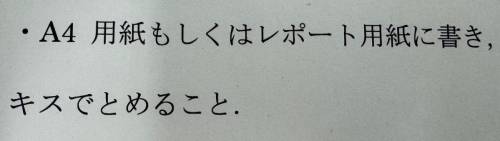 ・A4 用紙もしくはレポート用紙に書き,
キスでとめること.